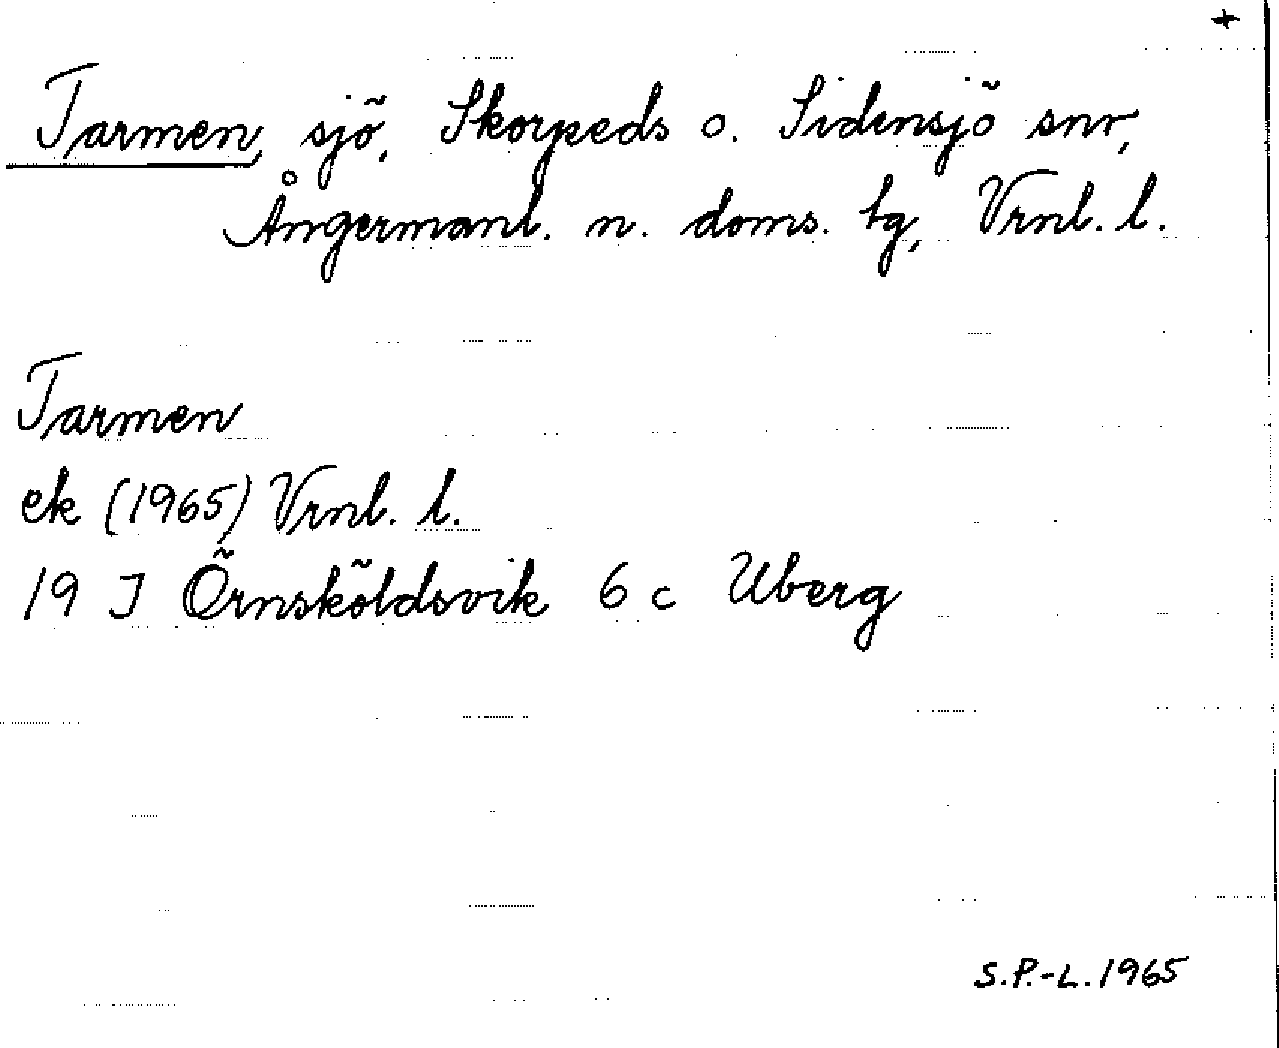 +
Tarmen, sjö, Skorpeds o. Sidensjö snr,
Ångermanl. n. doms. tg, Vrnl. l.
Tarmen
ek (1965) Vrnl. l.
19 J Örnsköldsvik 6 c Uberg
S.P.-L. 1965